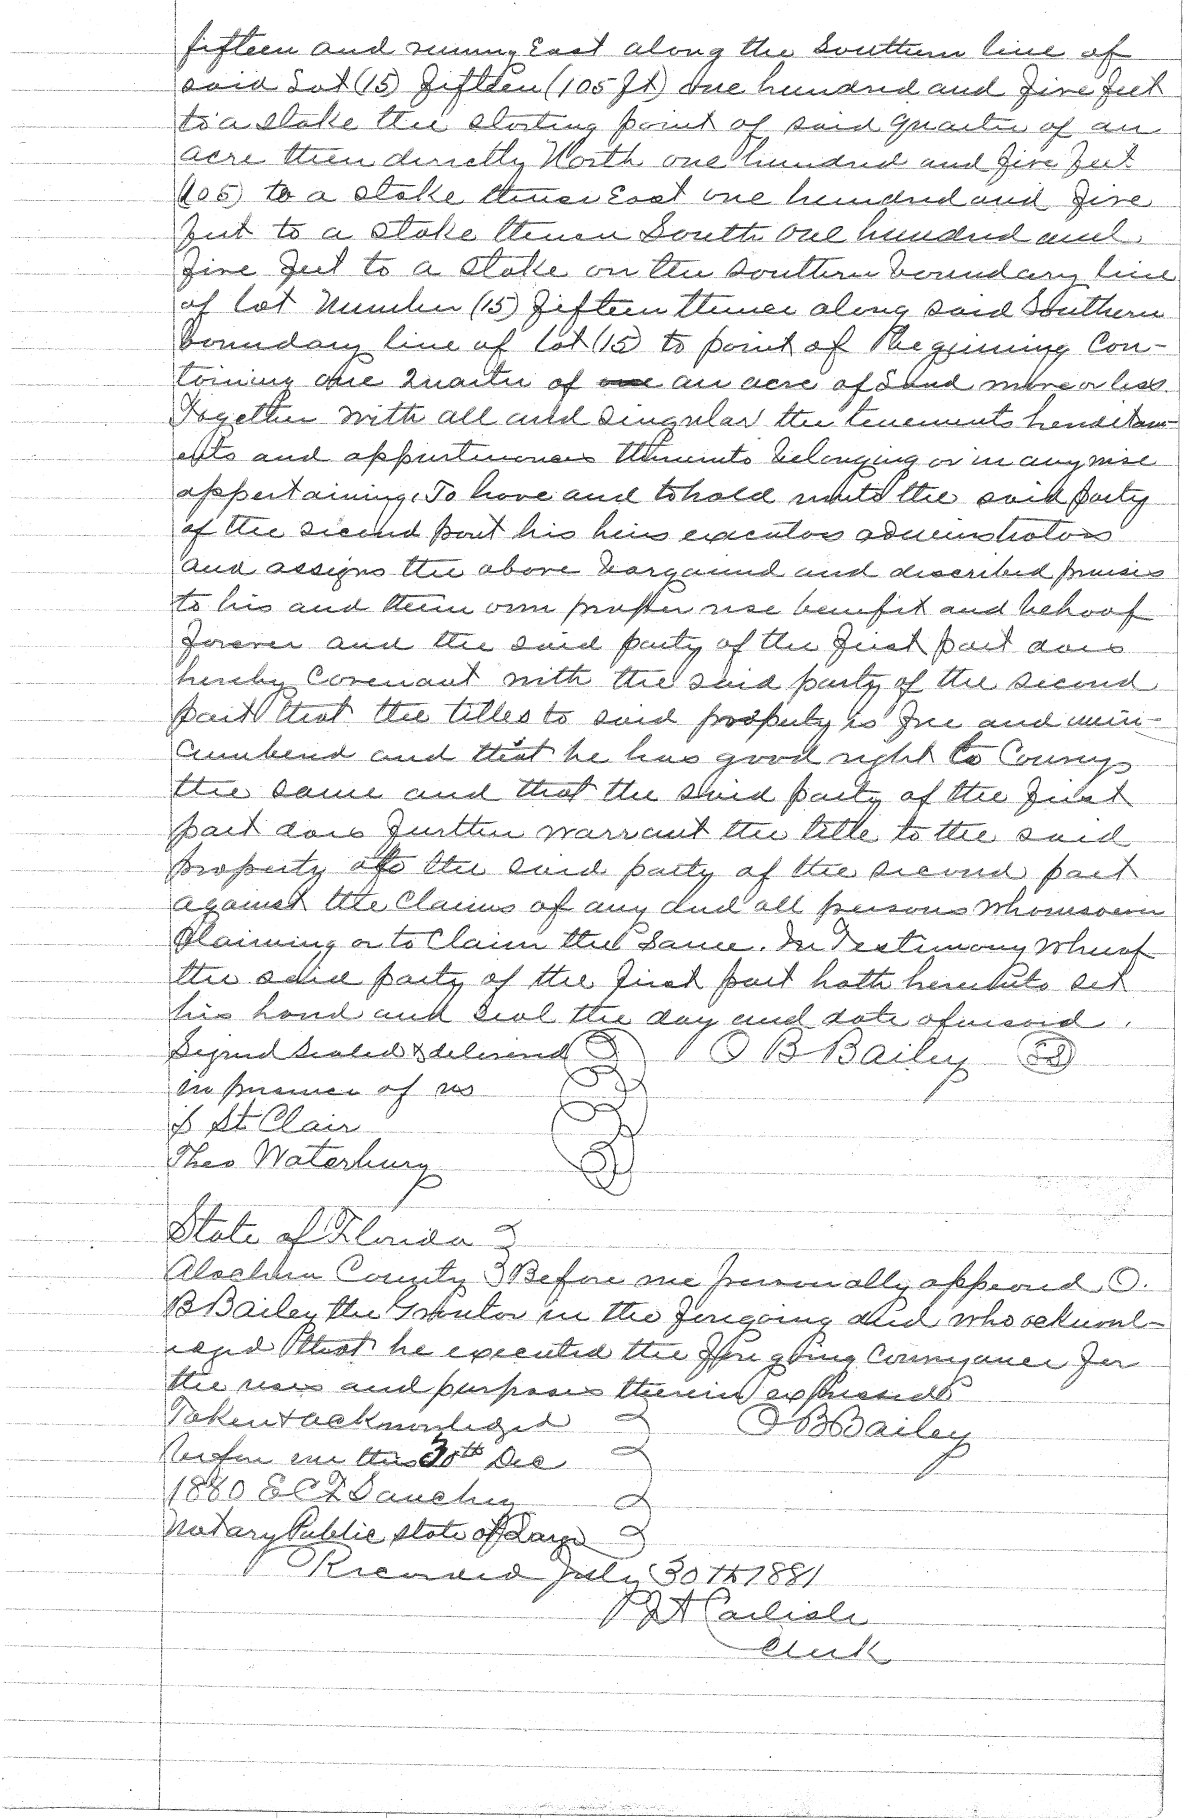 fifteen and runing East along the Southern line of
said Lot (15) fifteen (105 ft) one hundred and five feet
to a stake the starting point of said quarter of an
acre then directly North one hundred and five feet
(105) to a stake thence East one hundred and five
feet to a stake thence South one hundred and
five feet to a stake on the southern boundary line
of lot Number (15) fifteen thence along said Southern
boundary line of lot (15) to point of Beginning Con-
taining one Quarter of an acre of Land more or less
Together with all and singular the tenements hereditam-
ents and appurtenances thereunto belonging or in any wise
appertaining. To have and to hold unto the said party
of the second part his heirs executors administrators
and assigns the above bargained and described premises
to his and their own proper use benefit and behoof
forever and the said party of the first part does
hereby Covenant with the said party of the second
part that the titles to said property is free and unin-
cumbered and that he has good right to Convey
the same and that the said party of the first
part does further warrant the title to the said
property to the said party of the second part
against the Claims of any and all persons whomsoever
Claiming or to Claim the Same. In Testimony whereof
the said party of the first part hath hereunto set
his hand and seal the day and date aforesaid.
Signed Sealed & delivered O B Bailey
in presence of us
St Clair
Theo Waterbury
State of Florida
Alachua County Before me personally appeared O.
B Bailey the Grantor in the foregoing deed who acknowl-
edged that he executed the foregoing Conveyance for
the uses and purposes therein expressed
Taken & acknowledged O B Bailey
before me this 30th Dec
1880 E C F Sanchez
Notary Public State at Large
Recorded July 30th 1881
Carlisle
Clerk